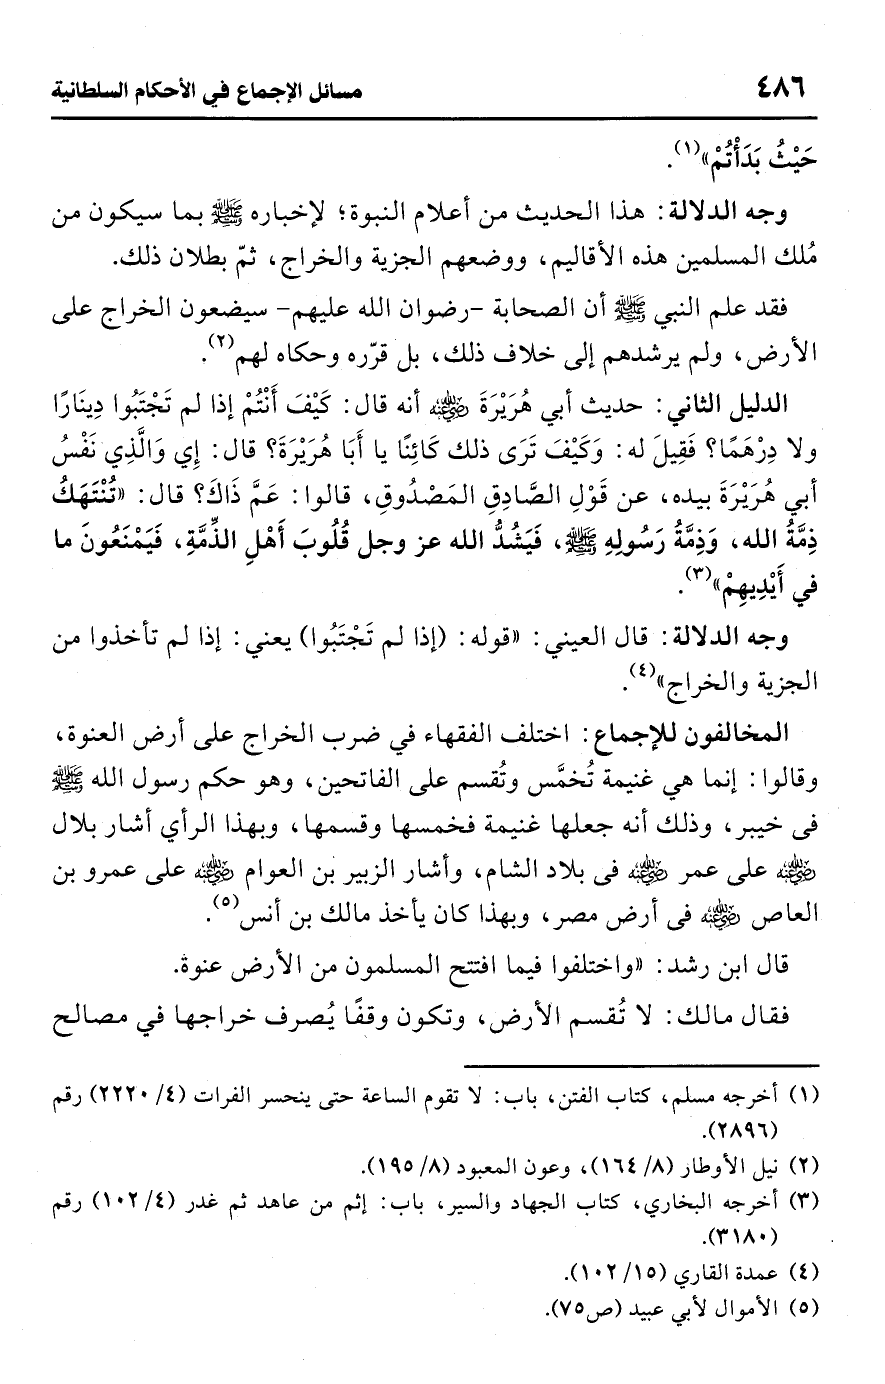 ٤٨٦ مسائل الإجماع في الأحكام السلطانية
حَيْثُ بَدَأْتُمْ»(١).
وجه الدلالة: هذا الحديث من أعلام النبوة؛ لإخباره ﷺ بما سيكون من
مُلك المسلمين هذه الأقاليم، ووضعهم الجزية والخراج، ثمّ بطلان ذلك.
فقد علم النبي ﷺ أن الصحابة -رضوان الله عليهم- سيضعون الخراج على
الأرض، ولم يرشدهم إلى خلاف ذلك، بل قرّره وحكاه لهم(٢).
الدليل الثاني: حديث أبي هُرَيْرَةَ رضي الله عنه أنه قال: كَيْفَ أَنْتُمْ إذا لم تَجْتَبُوا دِينَارًا
ولا دِرْهَمًا؟ فَقِيلَ له: وَكَيْفَ تَرَى ذلك كَائِنًا يا أَبَا هُرَيْرَةَ؟ قال: إِي وَالَّذِي نَفْسُ
أبي هُرَيْرَةَ بيده، عن قَوْلِ الصَّادِقِ المَصْدُوقِ، قالوا: عَمَّ ذَاكَ؟ قال: «تُنْتَهَكُ
ذِمَّةُ الله، وَذِمَّةُ رَسُولِهِ ﷺ، فَيَشُدُّ الله عز وجل قُلُوبَ أَهْلِ الذِّمَّةِ، فَيَمْنَعُونَ ما
في أَيْدِيهِمْ»(٣).
وجه الدلالة: قال العيني: «قوله: (إذا لم تَجْتَبُوا) يعني: إذا لم تأخذوا من
الجزية والخراج»(٤).
المخالفون للإجماع: اختلف الفقهاء في ضرب الخراج على أرض العنوة،
وقالوا: إنما هي غنيمة تُخمَّس وتُقسم على الفاتحين، وهو حكم رسول الله ﷺ
فى خيبر، وذلك أنه جعلها غنيمة فخمسها وقسمها، وبهذا الرأي أشار بلال
رضي الله عنه على عمر رضي الله عنه فى بلاد الشام، وأشار الزبير بن العوام رضي الله عنه على عمرو بن
العاص رضي الله عنه فى أرض مصر، وبهذا كان يأخذ مالك بن أنس(٥).
قال ابن رشد: «واختلفوا فيما افتتح المسلمون من الأرض عنوة.
فقال مالك: لا تُقسم الأرض، وتكون وقفًا يُصرف خراجها في مصالح
(١) أخرجه مسلم، كتاب الفتن، باب: لا تقوم الساعة حتى ينحسر الفرات (٤/ ٢٢٢٠) رقم
(٢٨٩٦).
(٢) نيل الأوطار (٨/ ١٦٤)، وعون المعبود (٨/ ١٩٥).
(٣) أخرجه البخاري، كتاب الجهاد والسير، باب: إثم من عاهد ثم غدر (٤/ ١٠٢) رقم
(٣١٨٠).
(٤) عمدة القاري (١٥/ ١٠٢).
(٥) الأموال لأبي عبيد (ص٧٥).